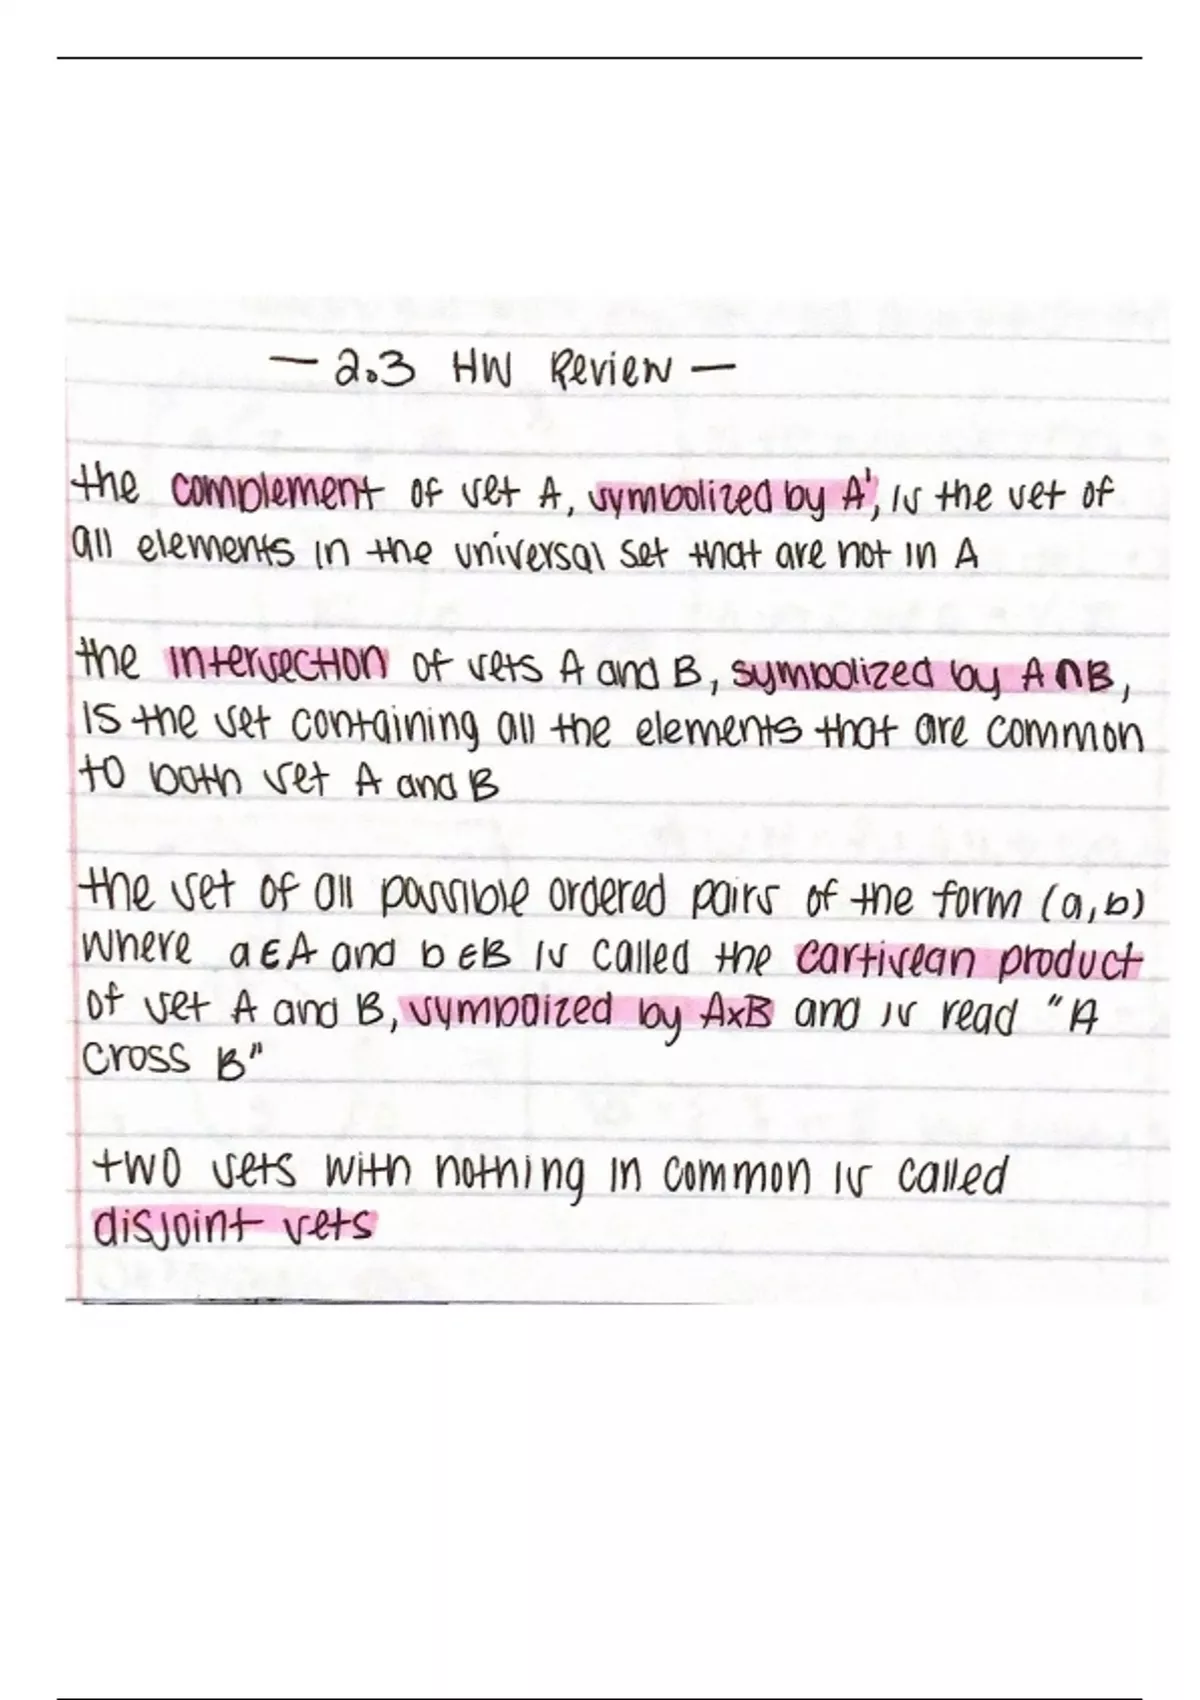 — 2.3 HW Review —
the complement of set A, symbolized by A', is the set of
all elements in the universal set that are not in A
the intersection of sets A and B, symbolized by A∩B,
is the set containing all the elements that are common
to both set A and B
the set of all possible ordered pairs of the form (a,b)
where a∈A and b∈B is called the cartisean product
of set A and B, symbolized by A×B and is read "A
cross B"
two sets with nothing in common is called
disjoint sets